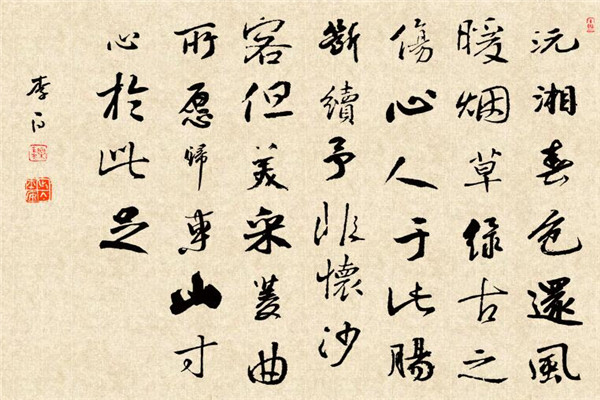 沅湘春色還風
暖烟草綠古之
傷心人于此腸
斷續予非懷沙
客但美采菱曲
所愿歸東山寸
心於此足
李白